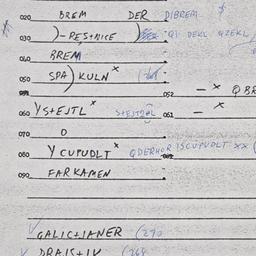 020 BREM DER DIBREM
030 )-RES+NICE QI DEKL QZEKL
040 BREM
050 SPA) KULN x
052 — x QBR
060 YS+EJTL x S+EJTZEL 061 — x
070 O
080 Y CUPUDLT x QDERHOR ISCUPUDLT xx (
090 FARKAMEN
GALIC+IANER (270
DRAIS+IV (268